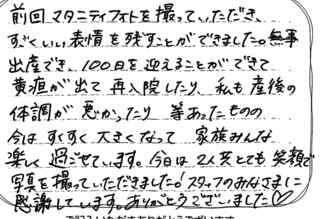 前回マタニティフォトを撮っていただき、
すごくいい表情を残すことができました。無事
出産でき、100日を迎えることができて
黄疸が出て再入院したり、私も産後の
体調が悪かったり 等あったものの
今はすくすく大きくなって 家族みんな
楽しく過ごせています。今日は2人共とても笑顔で
写真を撮っていただきました!スタッフのみなさまに
感謝しています。ありがとうございました♡